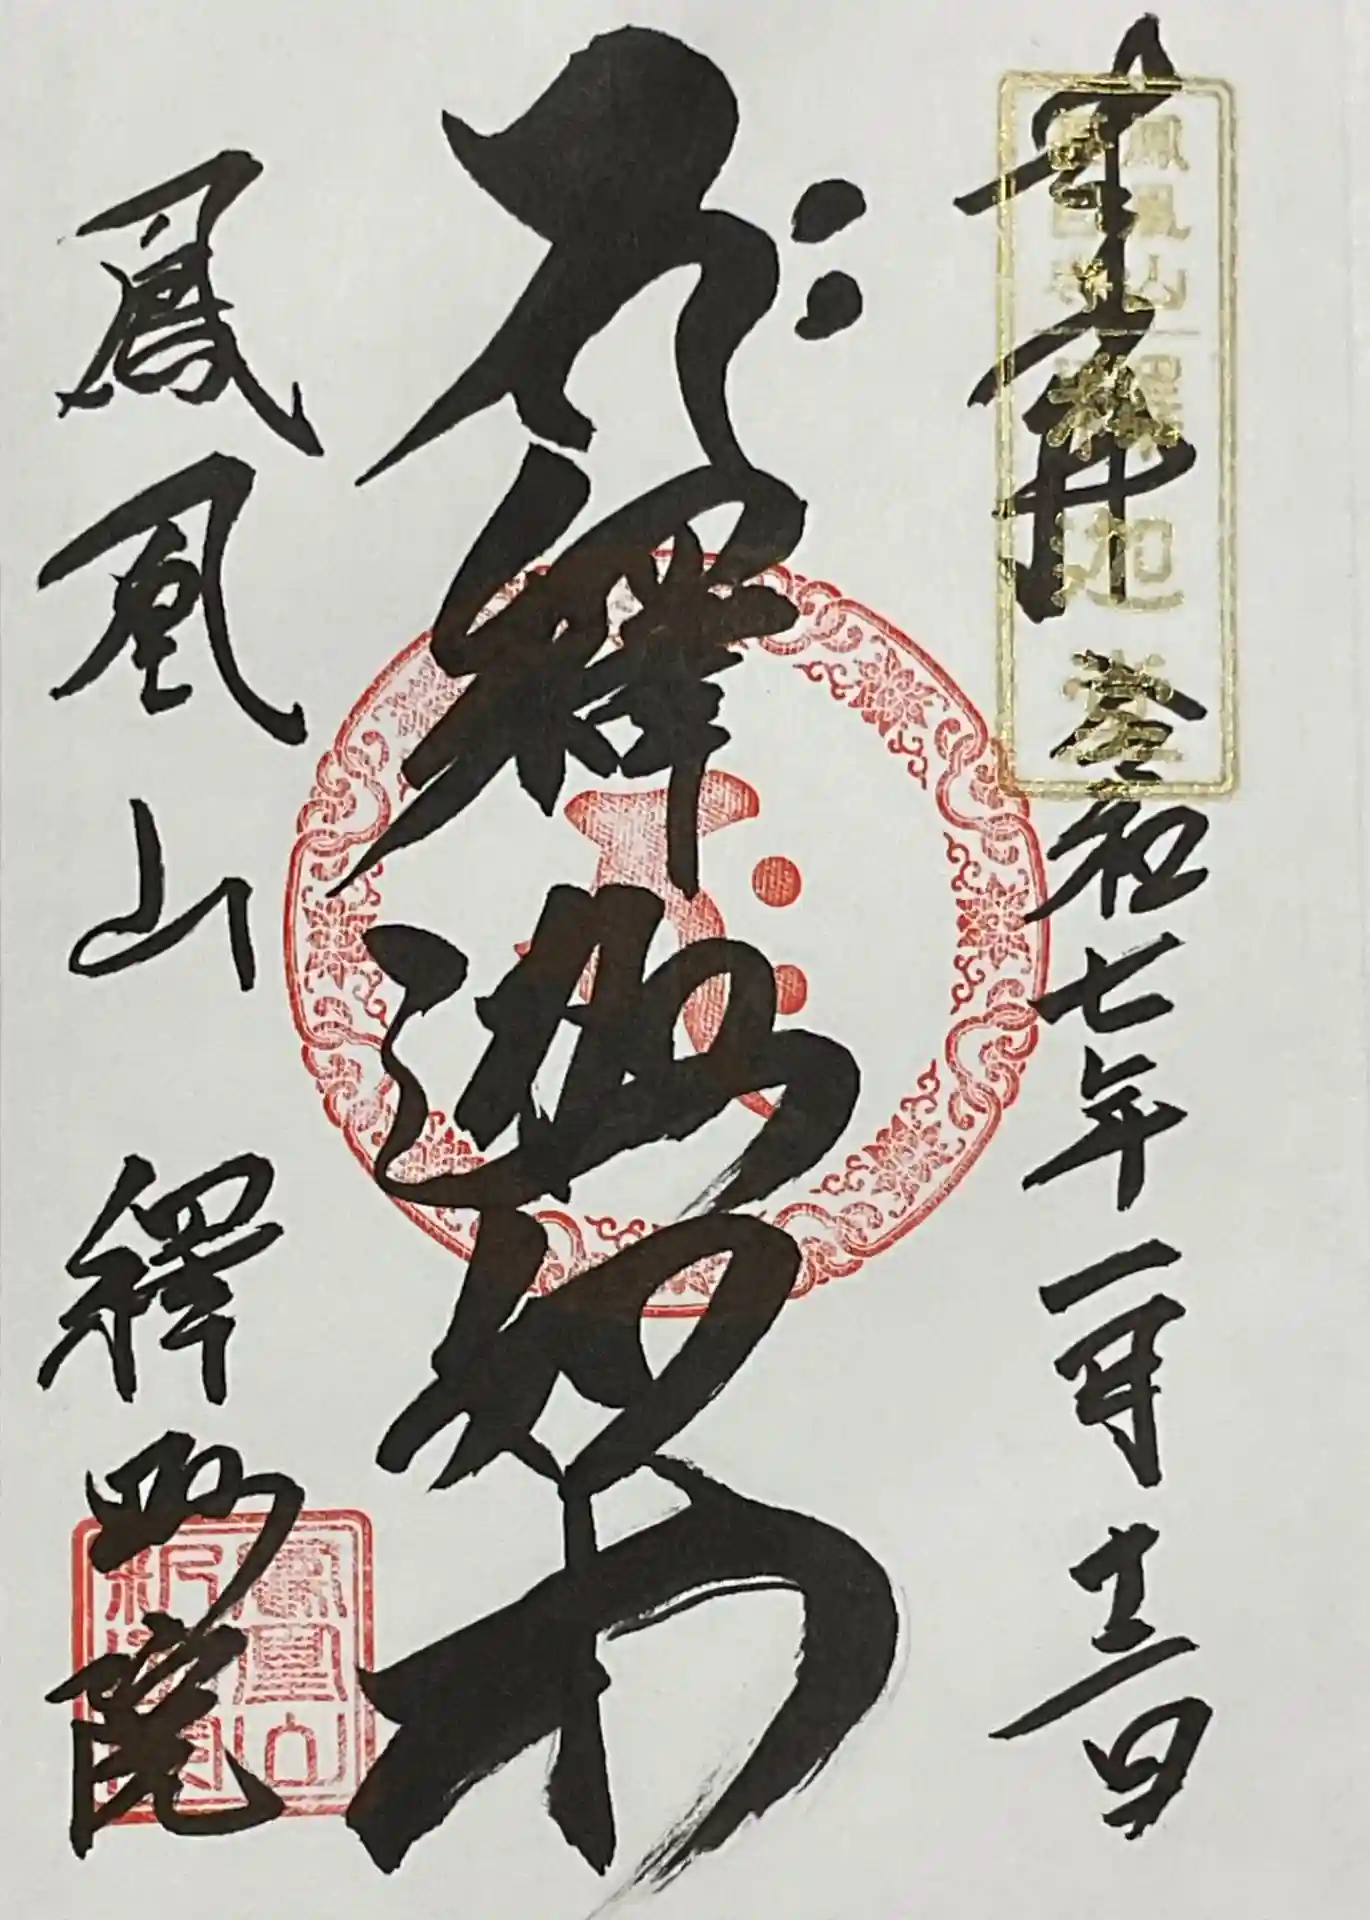 奉拝 令和七年一月十二日
鳳凰山
甚目寺
釋迦堂
釋迦如来
鳳凰山 釋迦院
鳳凰山
釈迦院